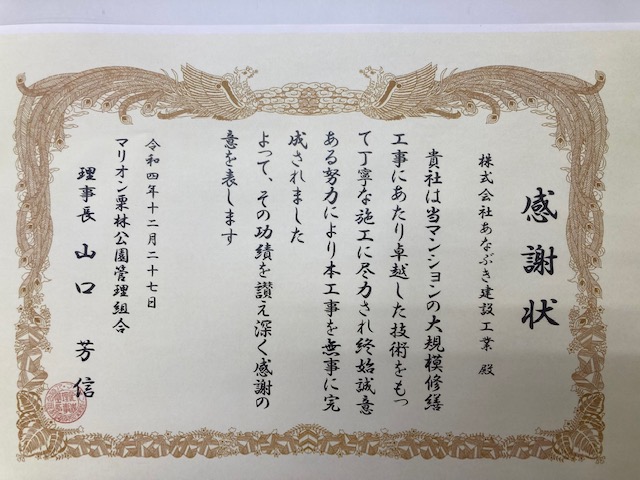 感謝状
株式会社あなぶき建設工業 殿
貴社は当マンションの大規模修繕
工事にあたり卓越した技術をもっ
て丁寧な施工に尽力され終始誠意
ある努力により本工事を無事に完
成されました
よって、その功績を讃え深く感謝の
意を表します
令和四年十二月二十七日
マリオン栗林公園管理組合
理事長 山口 芳信